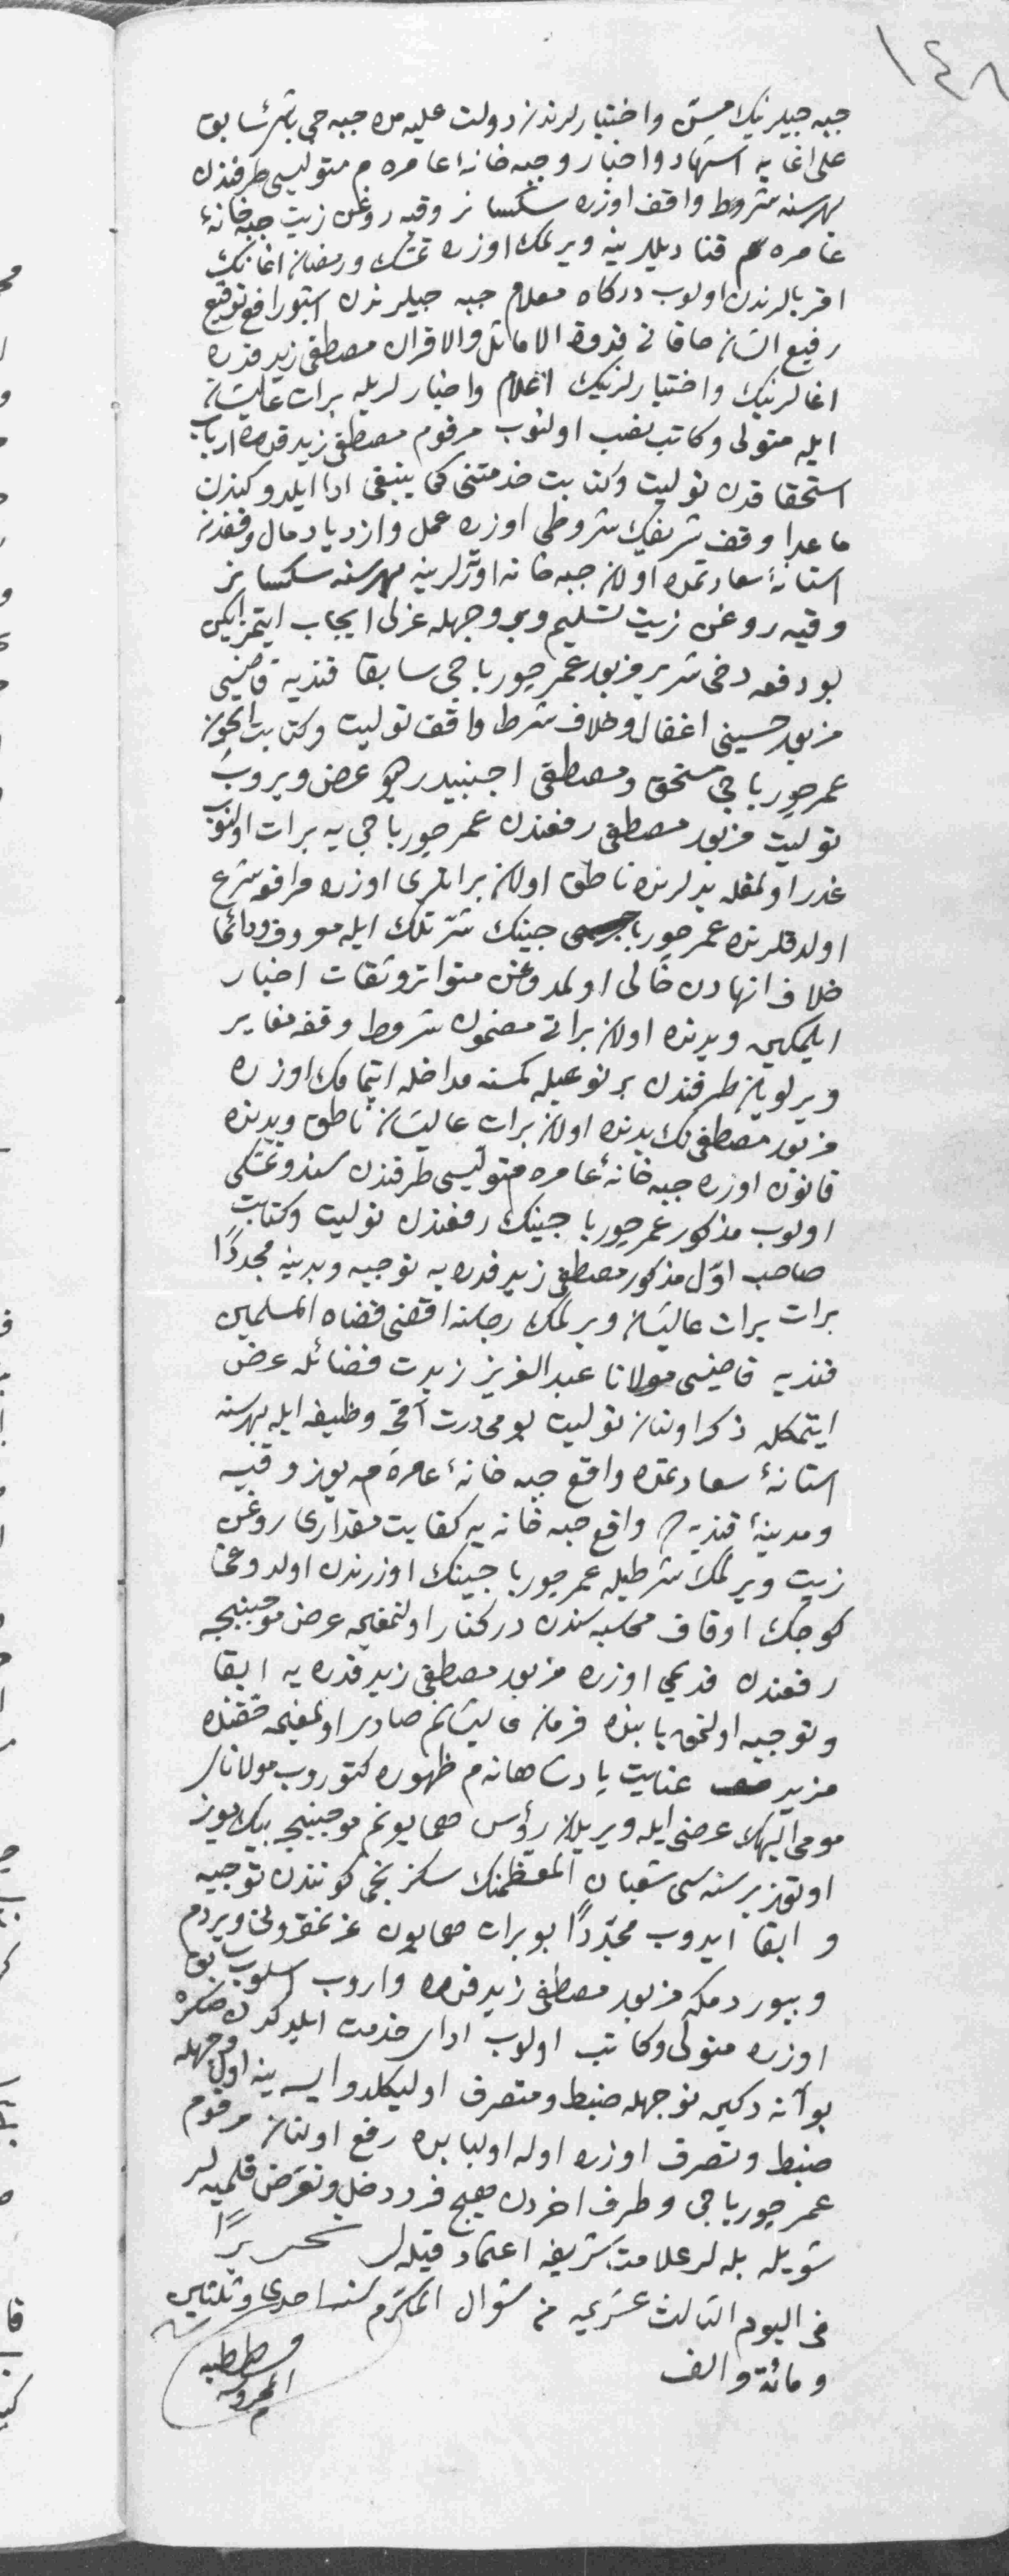 ١٤٨
جبه جیلرنیك مسن واختیارلرندن دولت علیه مده جبه جی باشی سابق
علی اغایه استشهاد واخبار وجبه خانهٔ عامره م متولیسی طرفندن
بهر سنه شروط واقف اوزره سكسان وقیه روغن زیت جبه خانهٔ
عامره م قنادیللرینه ویرلمك اوزره تمسك ورمضان اغانك
اقربالرندن اولوب دركاه معلام جبه جیلرندن اشبو رافع توقیع
رفیع الشان خاقانی قدوة الاماثل والاقران مصطفی زید قدره
اغالرینك واختیارلرینك اعلام واخبارلریله برات عالیشان
ایله متولی وكاتب نصب اولنوب مرقوم مصطفی زید قدره ارباب
استحقاقدن تولیت وكتابت خدمتنی كما ینبغی ادا ایلدوكندن
ماعدا وقف شریفك شروطی اوزره عمل وازدیاد مال وقفدن
استانهٔ سعادتمده اولان جبه خانه اوطه لرینه بهر سنه سكسان
وقیه روغن زیت تسلیم وبر وجهله عزلی ایجاب ایتمز ایكن
بو دفعه دخی شریر مزبور عمر چورباجی سابقا قندیه قاضیسی
مزبور حسینی اغفال وخلاف شرط واقف تولیت وكتابت ایچون
عمر چورباجی مستحق ومصطفی اجنبیدر دیو عرض ویروب
تولیت مزبور مصطفی رفعندن عمر چورباجی یه برات اولنوب
غدر اولمغله یدلرنده ناطق اولان براتلری اوزره مرافعه شرع
اولدقلرنده عمر چورباجینك شرّتلك ایله معروف ودائما
خلاف انهادن خالی اولمدوغن متواتر وثقات اخبار
ایلمكین ویدنده اولان براتی مضمون شروط وقفه مغایر
ویرلویان طرفندن بر نوعیله كمسنه مداخله ایتمامك اوزره
مزبور مصطفی نك یدنده اولان برات عالیشان ناطق ویدنده
قانون اوزره جبه خانهٔ عامره م متولیسی طرفندن سند وتمسكی
اولوب مذكور عمر چورباجینك رفعندن تولیت وكتابت
صاحب اوّل مذكور مصطفی زید قدره یه توجیه ویدینه مجددًا
برات برات عالیشان ویرلمك رجاسنه اقضی قضاة المسلمین
قندیه قاضیسی مولانا عبد العزیز زیدت فضائله عرض
ایتمكله ذكر اولنان تولیت یومی درت آقچه وظیفه ایله بهر سنه
استانهٔ سعادتمده واقع جبه خانهٔ عامره مه یوز وقیه
ومدینهٔ قندیه ده واقع جبه خانه یه كفایت مقداری روغن
زیت ویرلمك شرطیله عمر چورباجینك اوزرندن اولدوغی
كوچك اوقاف محاسبه سندن دركنار اولنمغین عرض موجبنجه
رفعندن قدیمی اوزره مزبور مصطفی زید قدره یه ابقا
وتوجیه اولنمق بابنده فرمان عالیشانم صادر اولمغین حقنده
مزید عنایت پادشاهانه م ظهوره كتوروب مولانای
مومی الیهك عرضی ایله ویریلان رؤس همایونم موجبنجه بیك یوز
اوتوز بر سنه سی شعبان المعظمنك سكزنجی كونندن توجیه
و ابقا ایدوب مجدّدًا بو برات همایون عزتمقرونی ویردم
وبیوردمكه مزبور مصطفی زید قدره واروب اسلوب سابق
اوزره متولی وكاتب اولوب ادای خدمت ایلدكدن صكره
بو آنه دكین نه وجهله ضبط ومتصرف اولیكلدو ایسه ینه اول وجهله
ضبط وتصرف اوزره اوله اولبابده رفع اولنان مرقوم
عمر چورباجی وطرف اخردن هیچ فرد دخل وتعرض قلمیه لر
شویله بله لر علامت شریفه اعتماد قیله لر تحریرًا
فی الیوم الثالث عشریه من شوال المكرّم لسنه احدی وثلثین
ومائة والف
قسطنطنیه
المحروسه